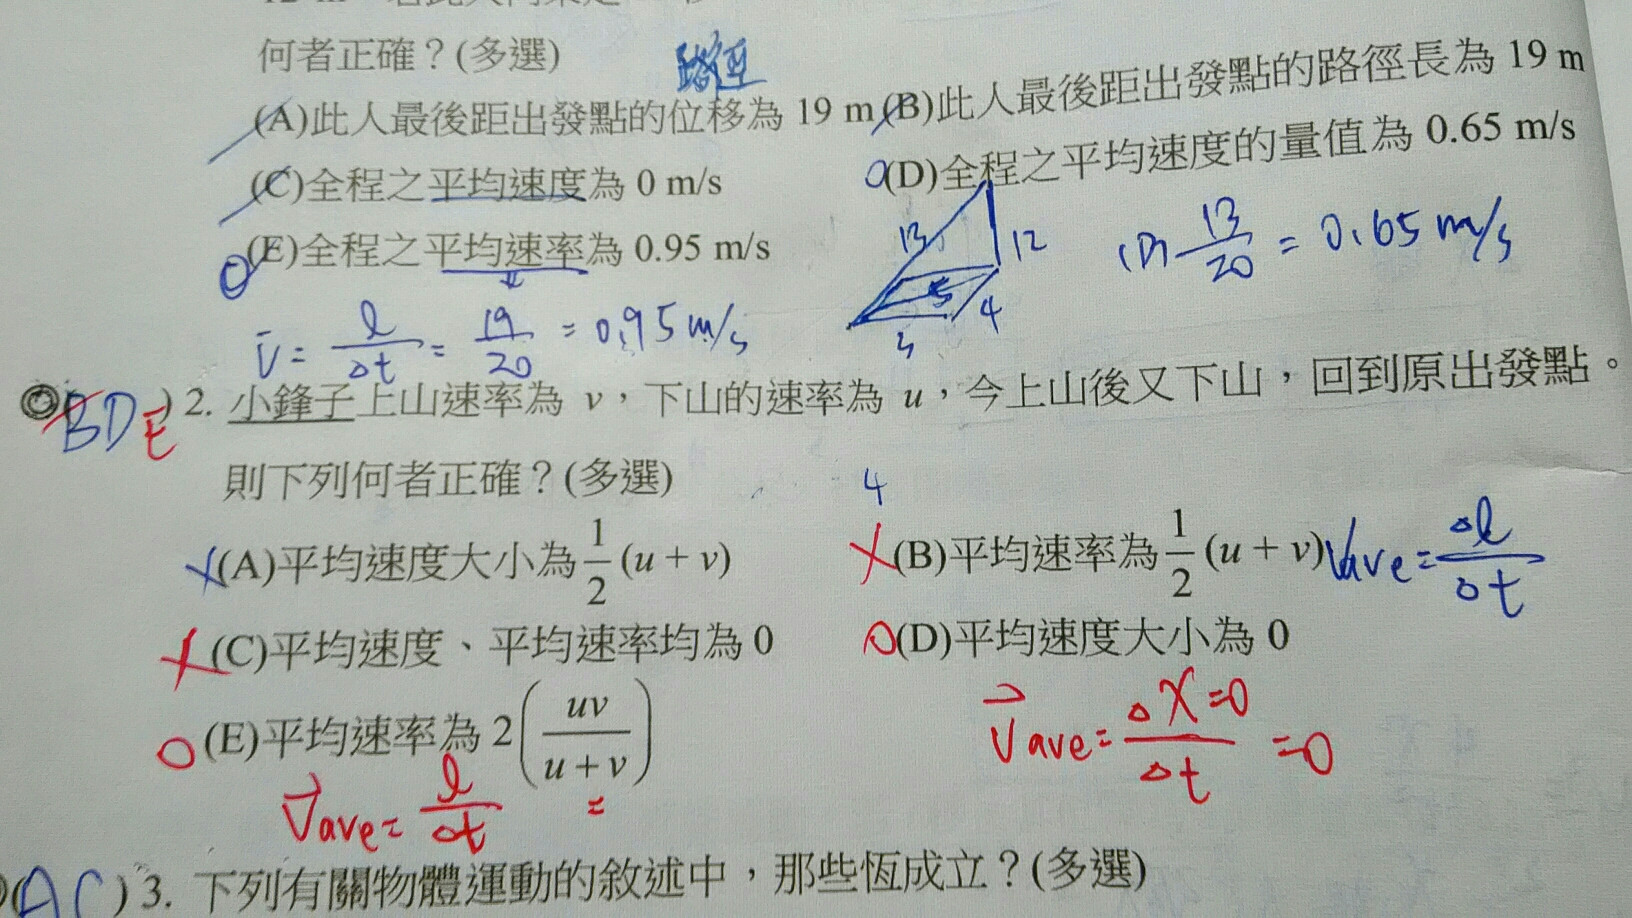 何者正確？(多選)
路徑
(A)此人最後距出發點的位移為 19 m (B)此人最後距出發點的路徑長為 19 m
(C)全程之平均速度為 0 m/s (D)全程之平均速度的量值為 0.65 m/s
(E)全程之平均速率為 0.95 m/s
13 12 5 4 3
(D) 13/20 = 0.65 m/s
v̄ = l/Δt = 19/20 = 0.95 m/s
BDE ) 2. 小鋒子上山速率為 v，下山的速率為 u，今上山後又下山，回到原出發點。
則下列何者正確？(多選)
4
(A)平均速度大小為 1/2 (u + v) (B)平均速率為 1/2 (u + v) Vave = Δl/Δt
(C)平均速度、平均速率均為 0 (D)平均速度大小為 0
(E)平均速率為 2(uv/(u + v)) V⃗ave = ΔX=0/Δt =0
V⃗ave = l/Δt
(AC) 3. 下列有關物體運動的敘述中，那些恆成立？(多選)